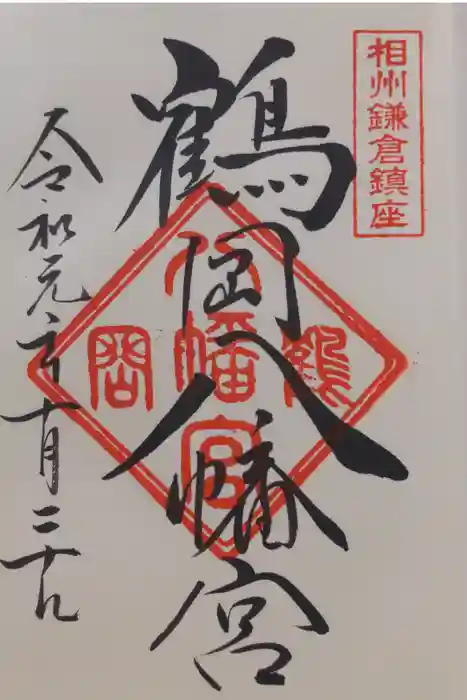 相州鎌倉鎮座
鶴岡八幡宮
鶴岡
八幡宮
令和元年十月二十日